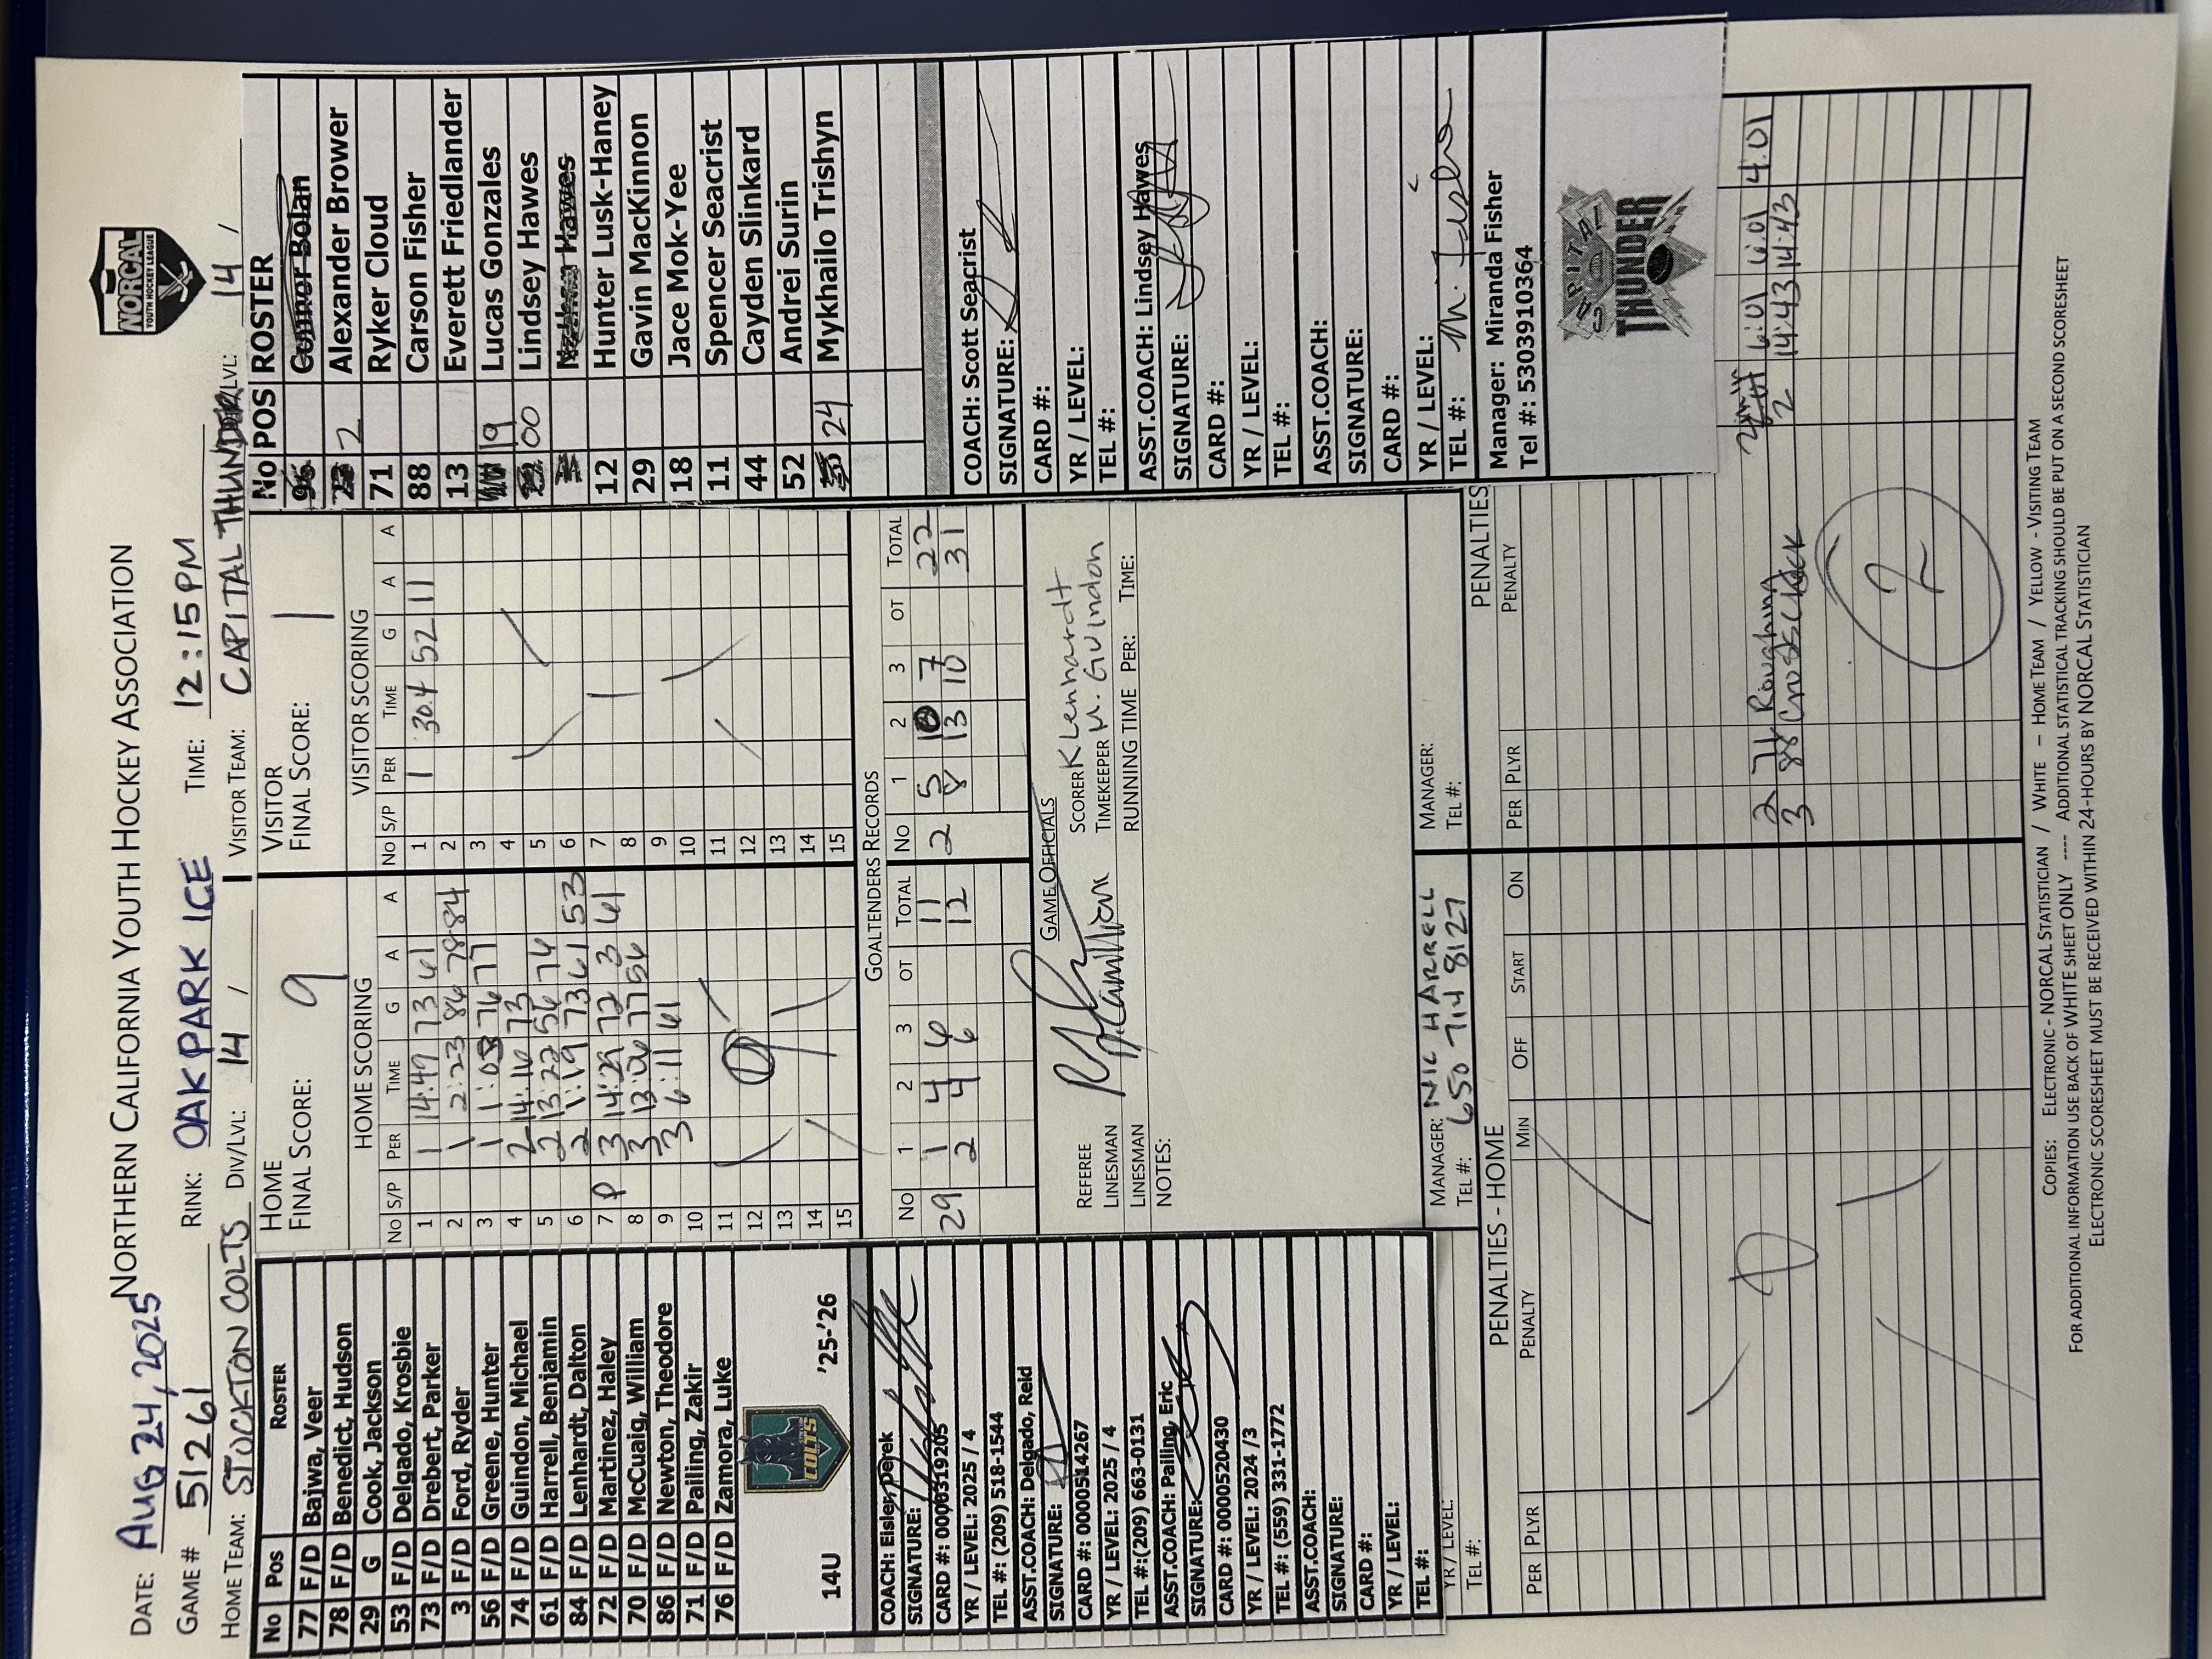 NORTHERN CALIFORNIA YOUTH HOCKEY ASSOCIATION
NORCAL
YOUTH HOCKEY LEAGUE
DATE: Aug 24, 2025
GAME # 51261 RINK: OAKPARK ICE TIME: 12:15PM
HOME TEAM: STOCKTON COLTS DIV/LVL: 14 / VISITOR TEAM: CAPITAL THUNDER LVL: 14 /
No Pos ROSTER
77 F/D Bajwa, Veer
78 F/D Benedict, Hudson
29 G Cook, Jackson
53 F/D Delgado, Krosbie
73 F/D Drebert, Parker
3 F/D Ford, Ryder
56 F/D Greene, Hunter
74 F/D Guindon, Michael
61 F/D Harrell, Benjamin
84 F/D Lenhardt, Dalton
72 F/D Martinez, Haley
70 F/D McCuaig, William
86 F/D Newton, Theodore
71 F/D Pailing, Zakir
76 F/D Zamora, Luke
14U '25-'26
COLTS
COACH: Eisler, Derek
SIGNATURE:
CARD #: 0006319205
YR / LEVEL: 2025 / 4
TEL #: (209) 518-1544
ASST.COACH: Delgado, Reid
SIGNATURE:
CARD #: 0000514267
YR / LEVEL: 2025 / 4
TEL #:(209) 663-0131
ASST.COACH: Pailing, Eric
SIGNATURE:
CARD #: 0000520430
YR / LEVEL: 2024 /3
TEL #: (559) 331-1772
ASST.COACH:
SIGNATURE:
CARD #:
YR / LEVEL:
TEL #:
YR / LEVEL:
TEL #:
HOME
FINAL SCORE: 9
HOME SCORING
No S/P PER TIME G A A
1 1 14:49 73 61
2 1 2:23 86 78 84
3 1 1:03 76 77
4 2 14:16 73
5 2 13:22 56 74
6 2 1:19 73 61 53
7 P 3 14:29 72 3 61
8 3 13:06 77 56
9 3 6:11 61
10
11
12
13
14
15
VISITOR
FINAL SCORE: 1
VISITOR SCORING
No S/P PER TIME G A A
1 1 30.4 52 11
2
3
4
5
6
7
8
9
10
11
12
13
14
15
GOALTENDERS RECORDS
No 1 2 3 OT TOTAL
29 1 4 6 11
2 4 6 12
No 1 2 3 OT TOTAL
2 5 10 7 22
8 13 10 31
GAME OFFICIALS
REFEREE
LINESMAN
LINESMAN
NOTES:
SCORER K Lenhardt
TIMEKEEPER M. Guindon
RUNNING TIME PER: TIME:
MANAGER: NIC HARRELL
TEL #: 650 714 8127
MANAGER:
TEL #:
No POS ROSTER
96 Connor Bolan
2 Alexander Brower
71 Ryker Cloud
88 Carson Fisher
13 Everett Friedlander
19 Lucas Gonzales
00 Lindsey Hawes
Hawes
12 Hunter Lusk-Haney
29 Gavin MacKinnon
18 Jace Mok-Yee
11 Spencer Seacrist
44 Cayden Slinkard
52 Andrei Surin
24 Mykhailo Trishyn
COACH: Scott Seacrist
SIGNATURE:
CARD #:
YR / LEVEL:
TEL #:
ASST.COACH: Lindsey Hawes
SIGNATURE:
CARD #:
YR / LEVEL:
TEL #:
ASST.COACH:
SIGNATURE:
CARD #:
YR / LEVEL:
TEL #:
Manager: Miranda Fisher
Tel #: 5303910364
CAPITAL
THUNDER
PENALTIES - HOME
PER PLYR PENALTY MIN OFF START ON
PENALTIES
PER PLYR PENALTY
2 71 Roughing 6:01 6:01 4:01
3 88 Cross Check 2 14:43 14:43
2
COPIES: ELECTRONIC - NORCAL STATISTICIAN / WHITE – HOME TEAM / YELLOW - VISITING TEAM
FOR ADDITIONAL INFORMATION USE BACK OF WHITE SHEET ONLY ---- ADDITIONAL STATISTICAL TRACKING SHOULD BE PUT ON A SECOND SCORESHEET
ELECTRONIC SCORESHEET MUST BE RECEIVED WITHIN 24-HOURS BY NORCAL STATISTICIAN